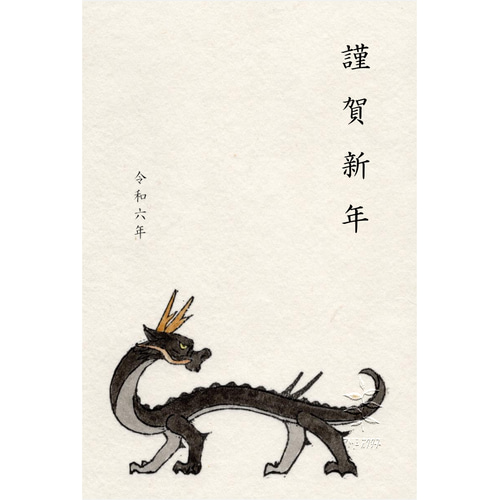 謹賀新年
令和六年